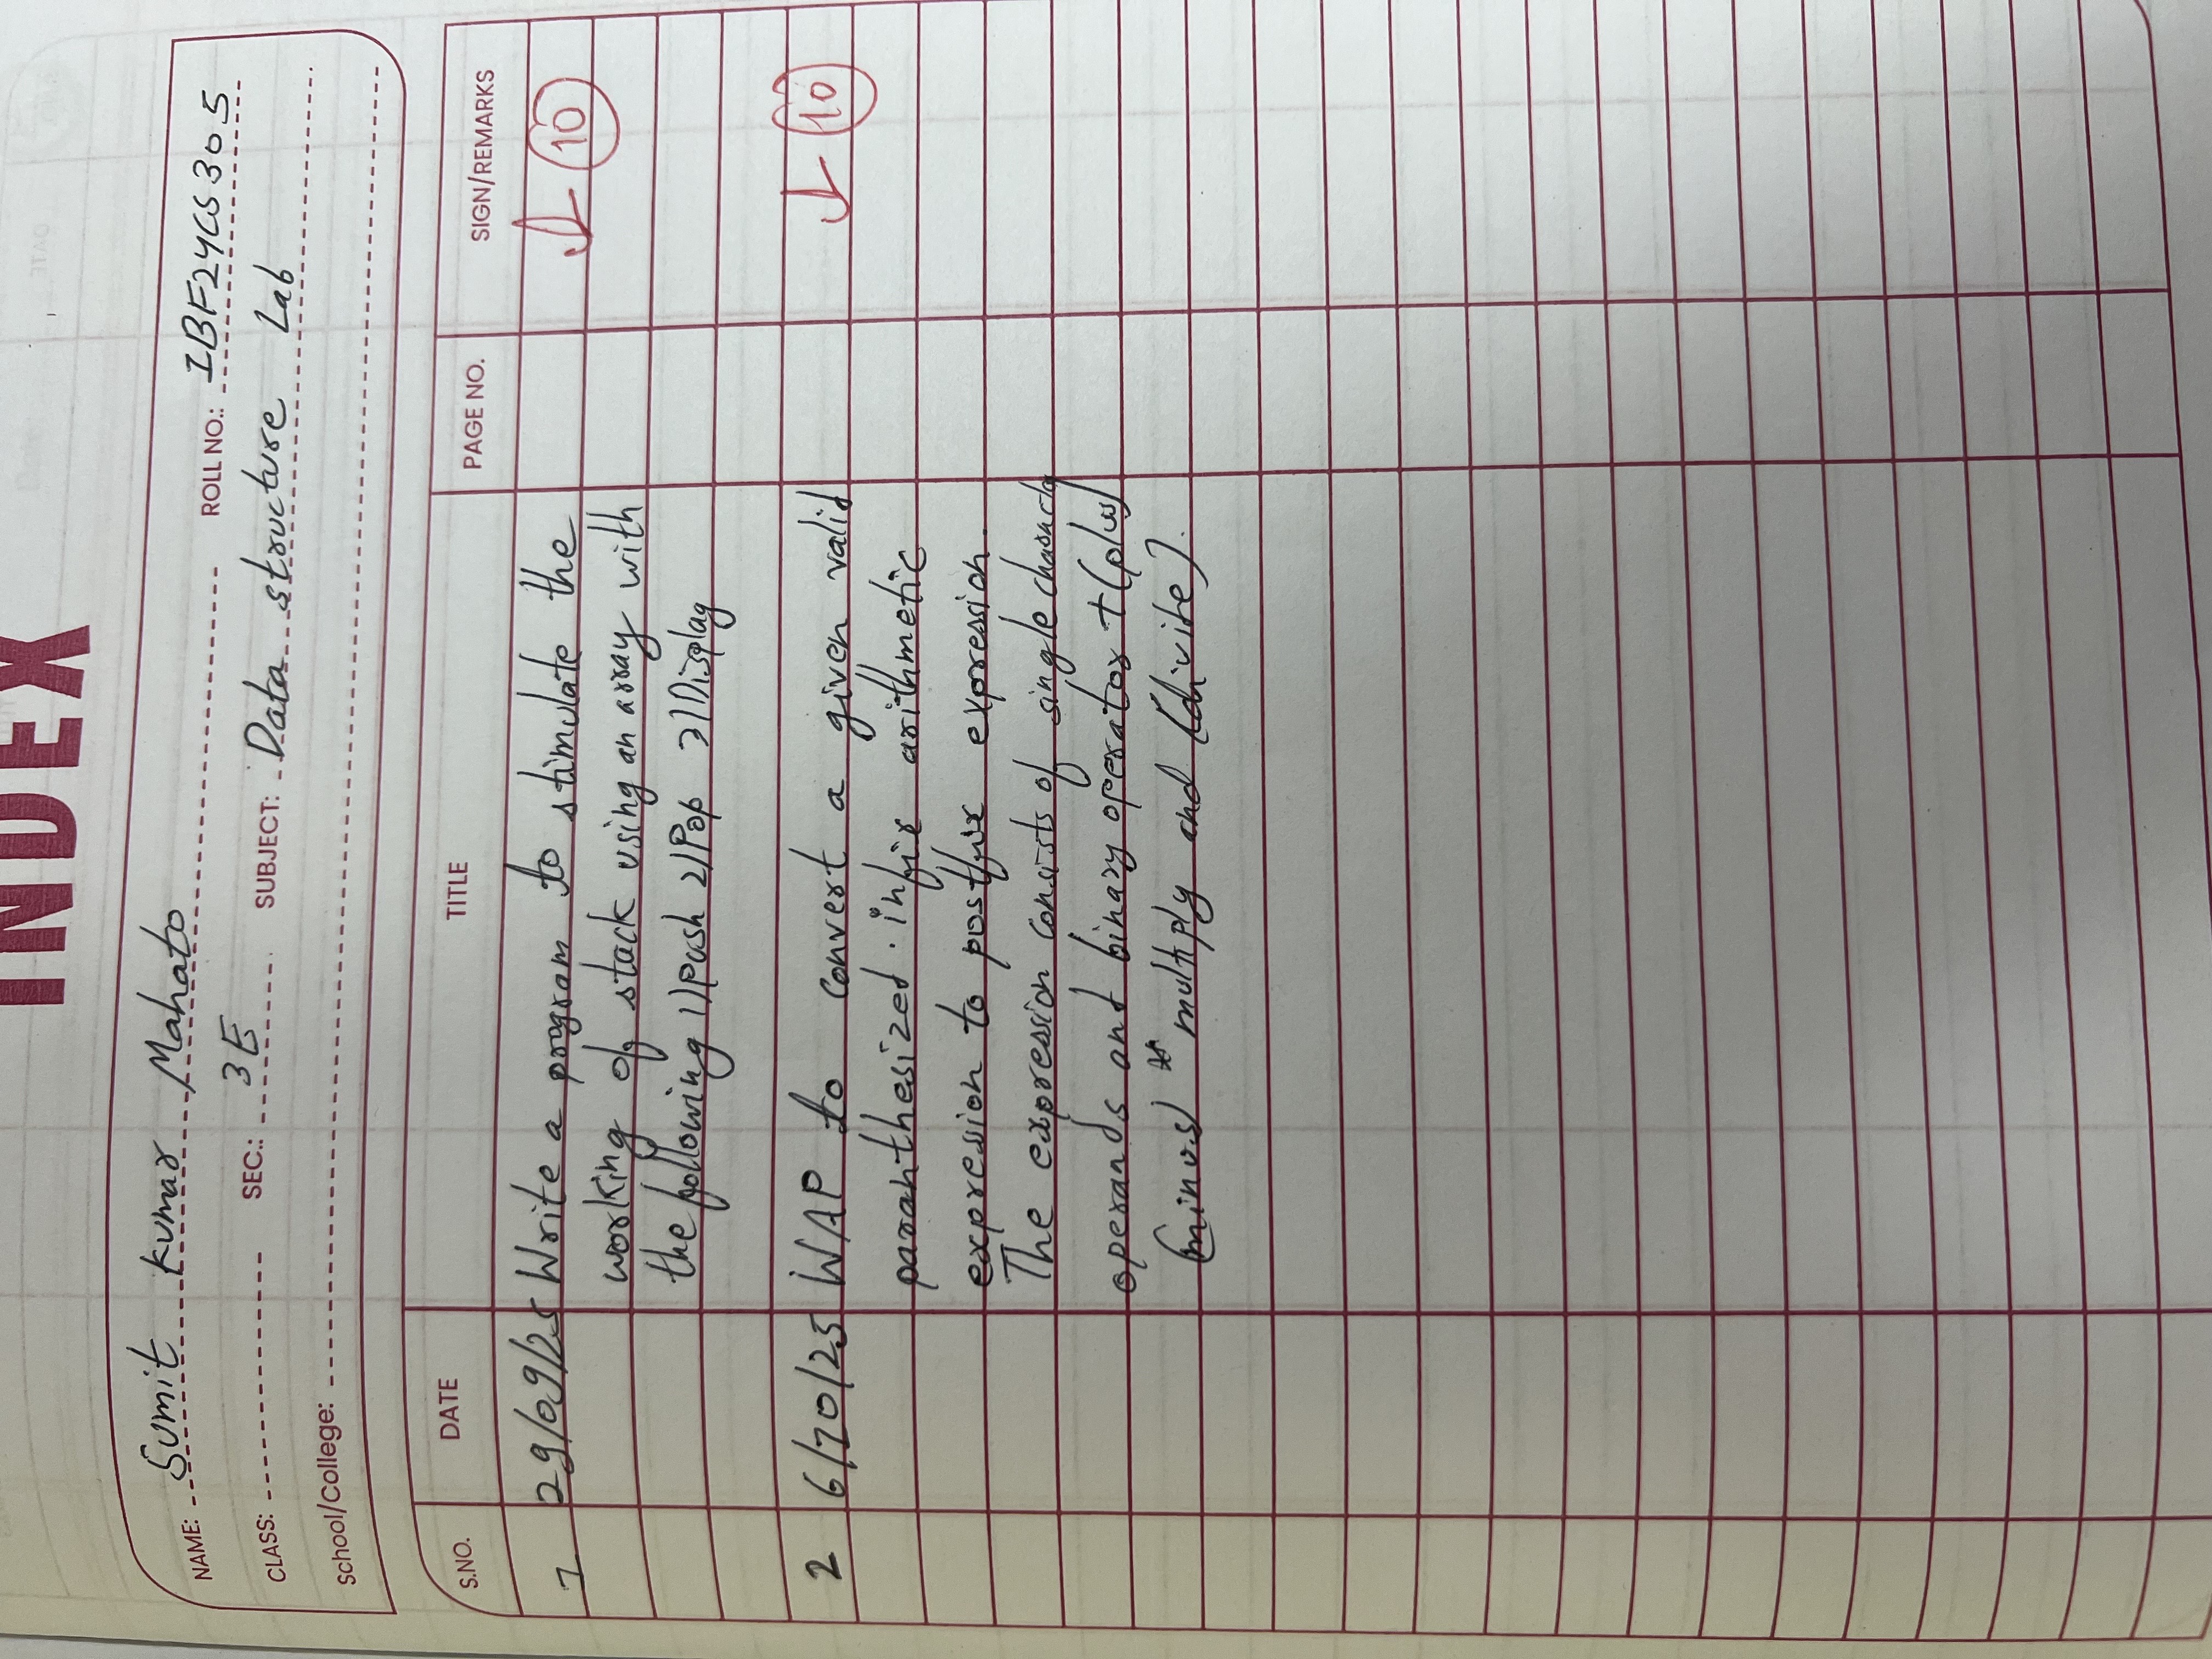 INDEX
NAME: Sumit Kumar Mahato ROLL NO.: IBF24CS305
CLASS: SEC.: 3E SUBJECT: Data structure Lab
School/College:
S.NO. DATE TITLE PAGE NO. SIGN/REMARKS
1 29/09/25 Write a program to stimulate the 10
working of stack using an array with
the following 1) Push 2) Pop 3) Display
2 6/10/25 WAP to convert a given valid 10
paranthesized infix arithmetic
expression to postfix expression.
The expression consists of single
operands and binary operator + (plus)
(minus) * multiply and (divite).